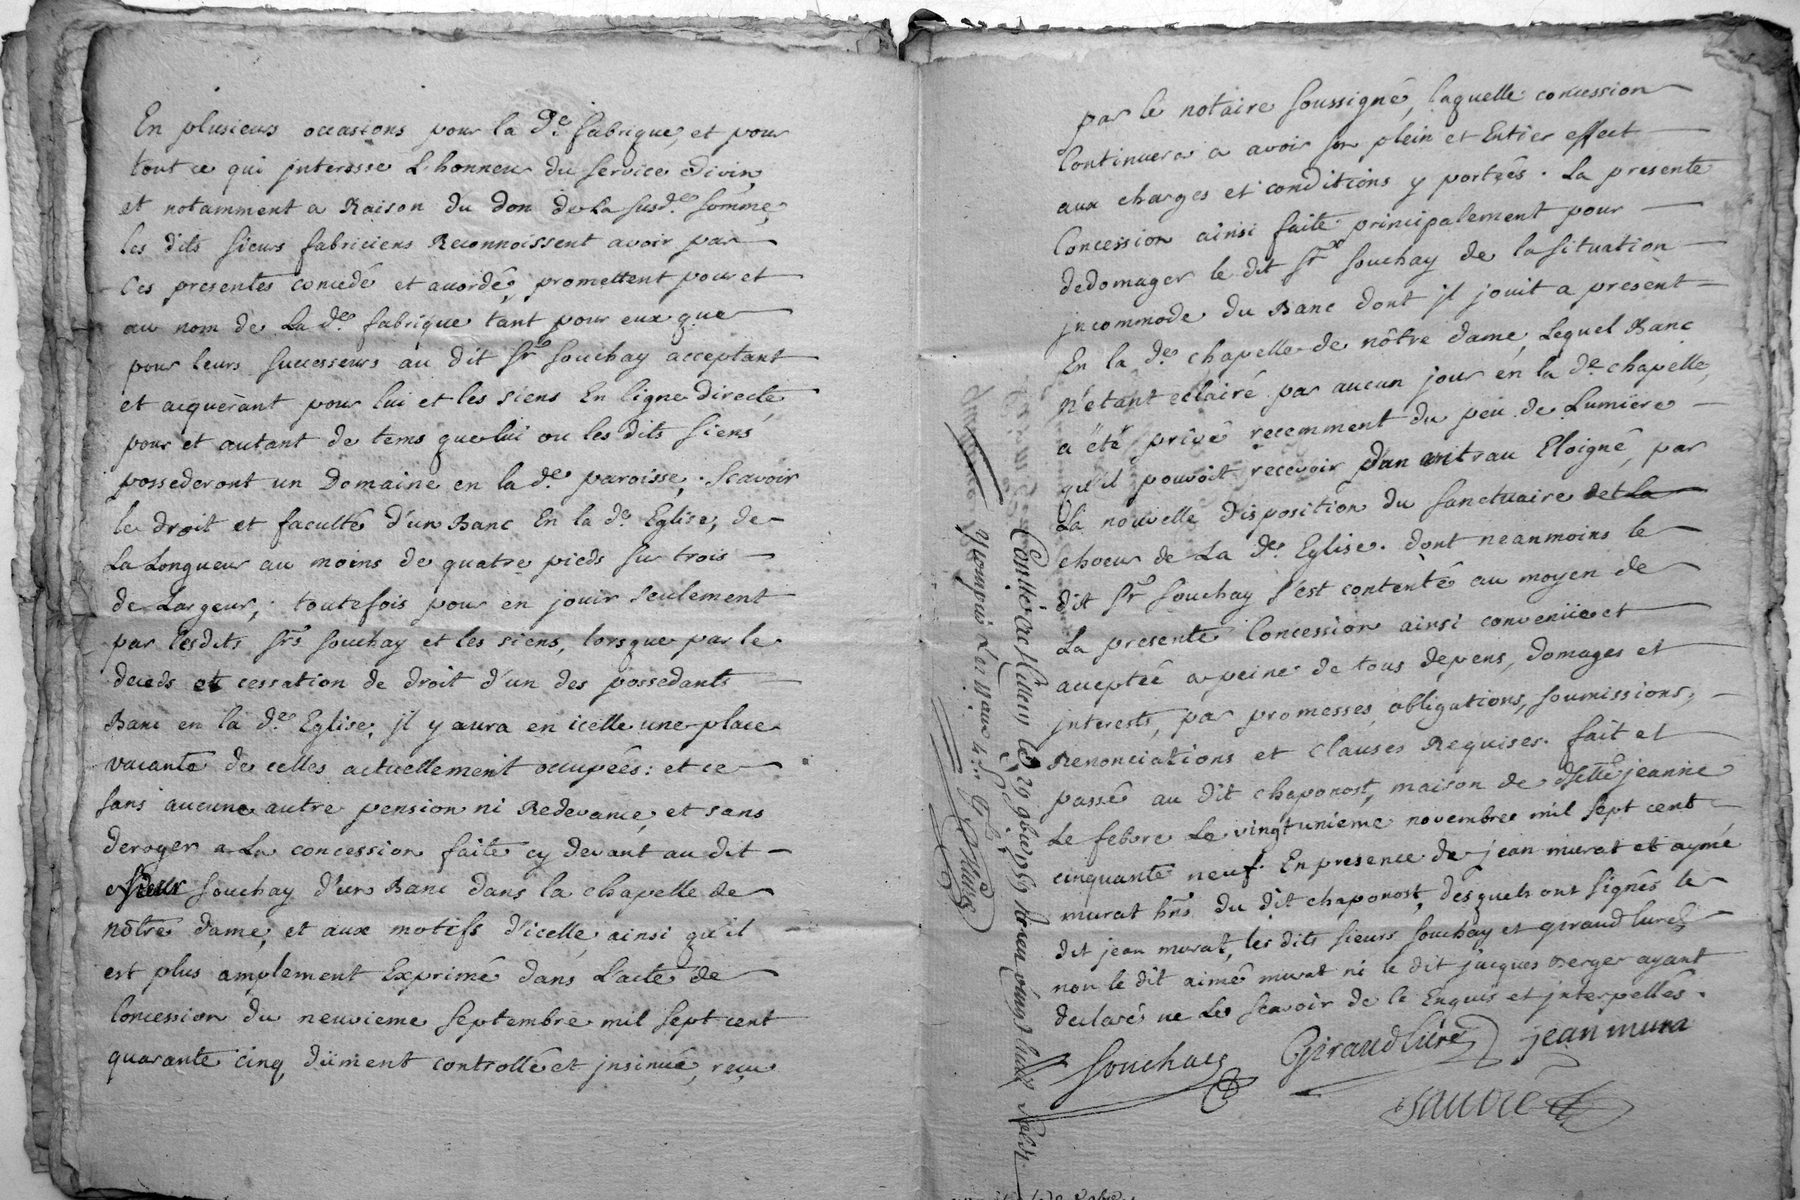 En plusieurs occasions pour la de. fabrique, et pour
tout ce qui jnteresse L'honneur du service divin,
et notamment a Raison du don de La susde. somme,
les dits sieurs fabriciens Reconnoissent avoir par
Ces presentes concedé et accordé, promettent pour et
au nom de La de. fabrique tant pour eux que
pour leurs successeurs au dit Sr. Souchay acceptant
et acquerant pour lui et les siens En ligne directe
pour et autant de tems que lui ou les dits siens
possederont un Domaine en la de. paroisse, Scavoir
le droit et faculté d'un Banc En la de. Eglise, de
La Longueur au moins de quatre pieds sur trois
de Largeur, toutefois pour en jouir seulement
par lesdits Srs. Souchay et les siens, lorsque par le
deceds et cessation de droit d'un des possedants
Banc en la de. Eglise, jl y aura en icelle une place
vacante de celles actuellement occupées: et ce
sans aucune autre pension ni Redevance, et sans
deroger a La concession faite cy devant au dit
sieur Souchay d'un Banc dans la chapelle de
nôtre dame, et aux motifs d'icelle, ainsi qu'il
est plus amplement Exprimé dans L'acte de
Concession du neuvieme Septembre mil sept cent
quarante cinq, düment controllé et jnsinué, reçu
par le notaire soussigné, laquelle concession
Continuera a avoir son plein et Entier effect
aux charges et conditions y portées. La presente
Concession ainsi faite principalement pour
dedomager le dit Sr. Souchay de la situation
jncommode du Banc dont jl jouit a present
En la de. chapelle de nôtre dame, Lequel Banc
n'etant eclairé par aucun jour en la de. chapelle,
a été privé recemment du peu de Lumiere
qu'il pouvoit recevoir d'un vitrau Eloigné, par
La nouvelle disposition du sanctuaire et la
choeur de La de. Eglise. dont neanmoins le
dit Sr. Souchay s'est contenté au moyen de
La presente Concession ainsi convenüe et
acceptée a peine de tous depens, domages et
jnterests, par promesses, obligations, soumissions,
Renonciations et clauses Requises. fait et
passé au dit chaponost, maison de dselle jeanne
Le febvre Le vingt unieme novembre mil sept cent
cinquante neuf. En presence de jean murat et aymé
murat du dit chaponost, desquels ont signés le
dit jean murat, les dits sieurs Souchay et giraud curé
non le dit aimé murat ni le dit jacques Berger ayant
declaré ne Le Scavoir de ce Enquis et jnterpellés.
Souchay Giraud curé jean mura
Contr. a St. le 29 9bre 1759